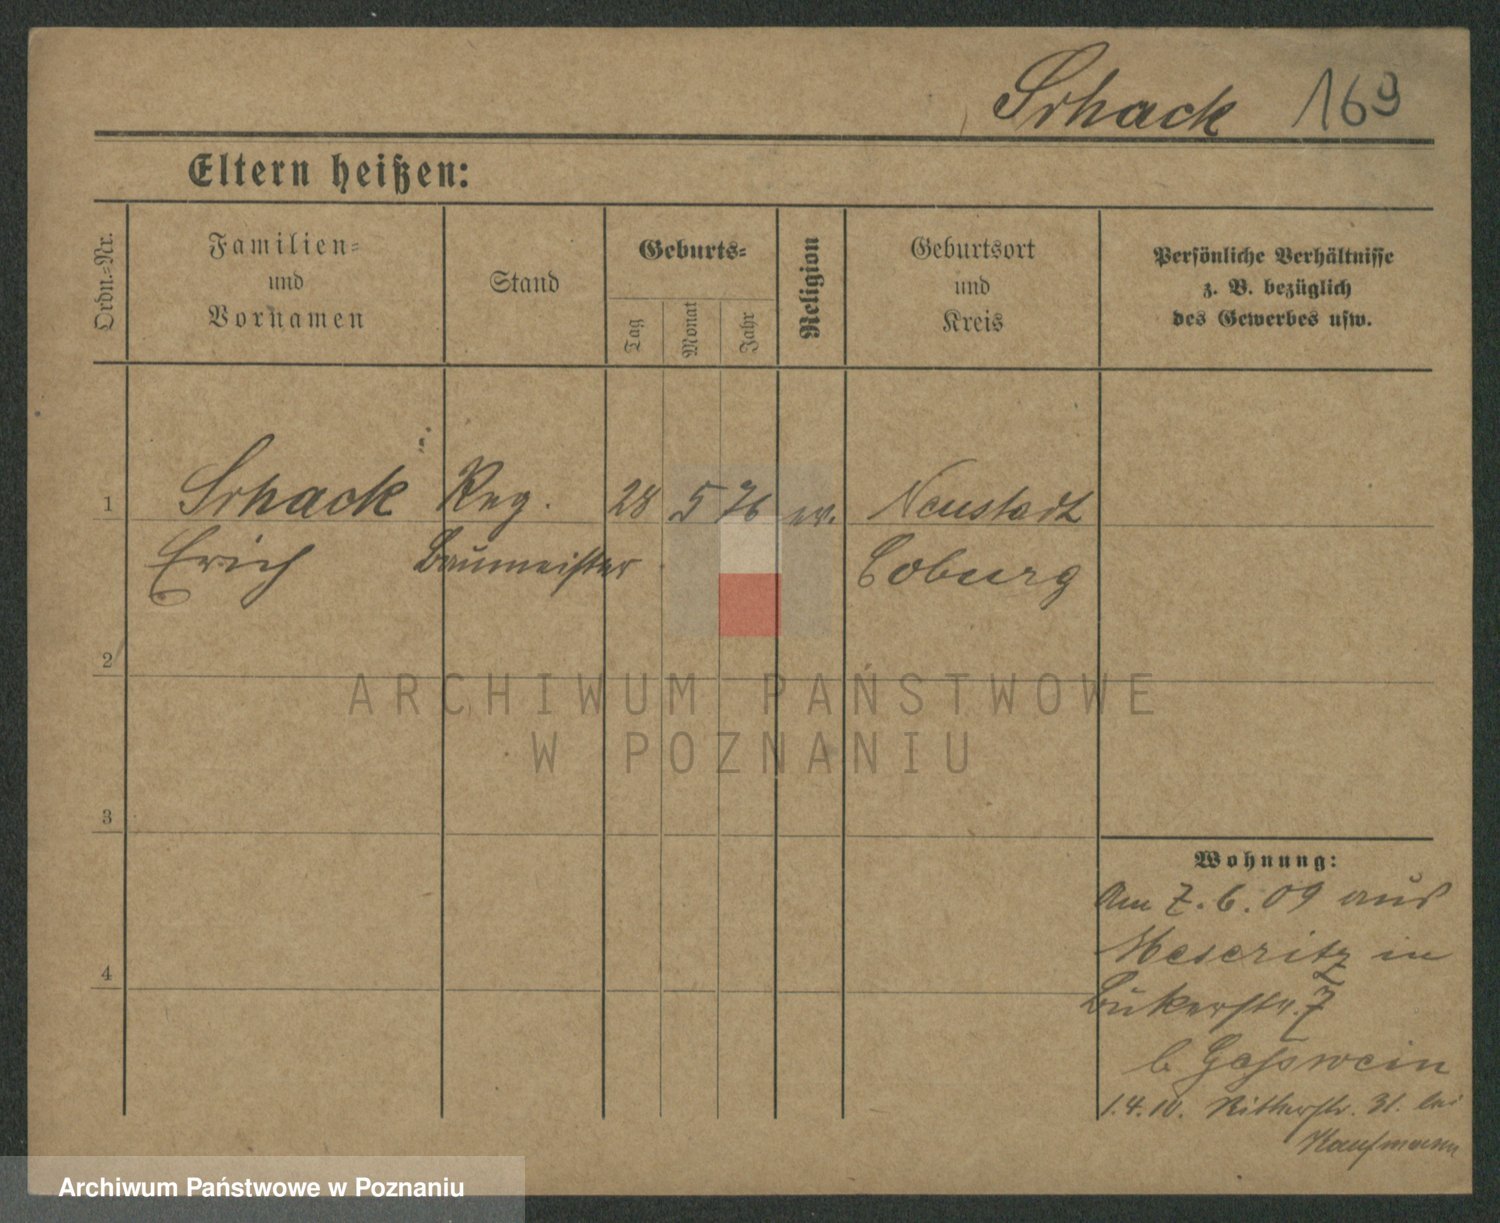 Schack 169
Eltern heißen:
Ordn.=Nr.
Familien=
und
Vornamen
Stand
Geburts=
Tag
Monat
Jahr
Religion
Geburtsort
und
Kreis
Persönliche Verhältnisse
z. B. bezüglich
des Gewerbes usw.
1 Schack Reg. 28 5 76 ev. Neustadt
Erich Baumeister Coburg
2
3
4
Wohnung:
Am 7. 6. 09 aus
Meseritz in
Bukerstr. 7
b. Gasswein
1.4.10. Ritterstr. 31. bei
Kaufmann
ARCHIWUM PAŃSTWOWE
W POZNANIU
Archiwum Państwowe w Poznaniu